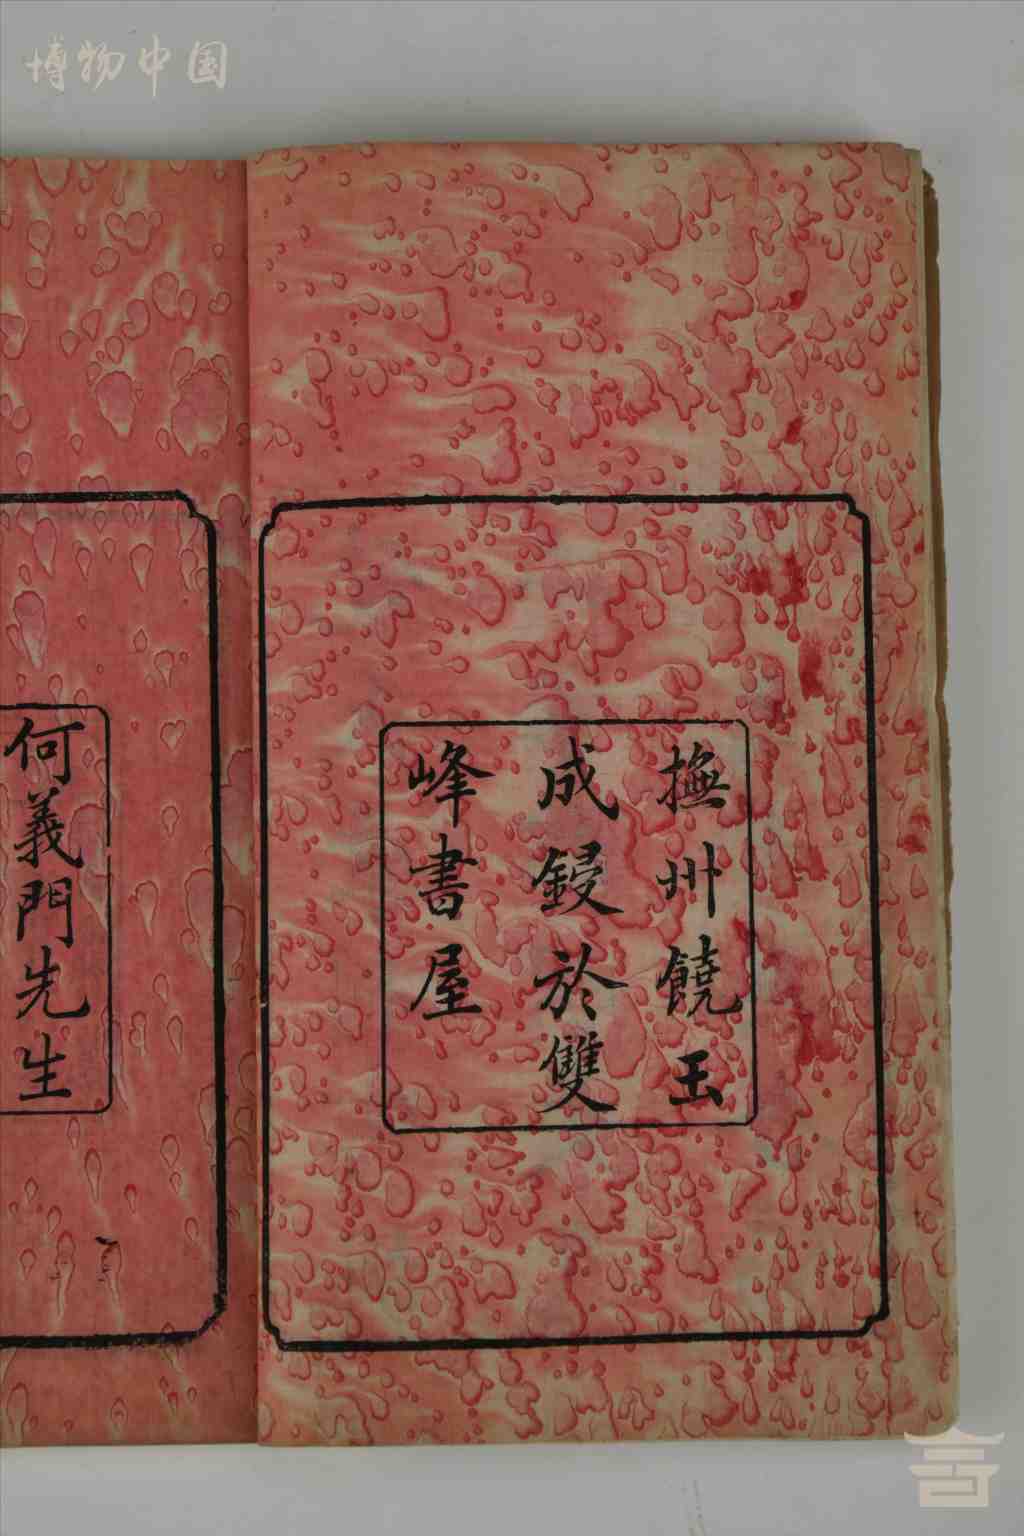 博物中国
撫州饒玉
成鋟於雙
峰書屋
何義門先生